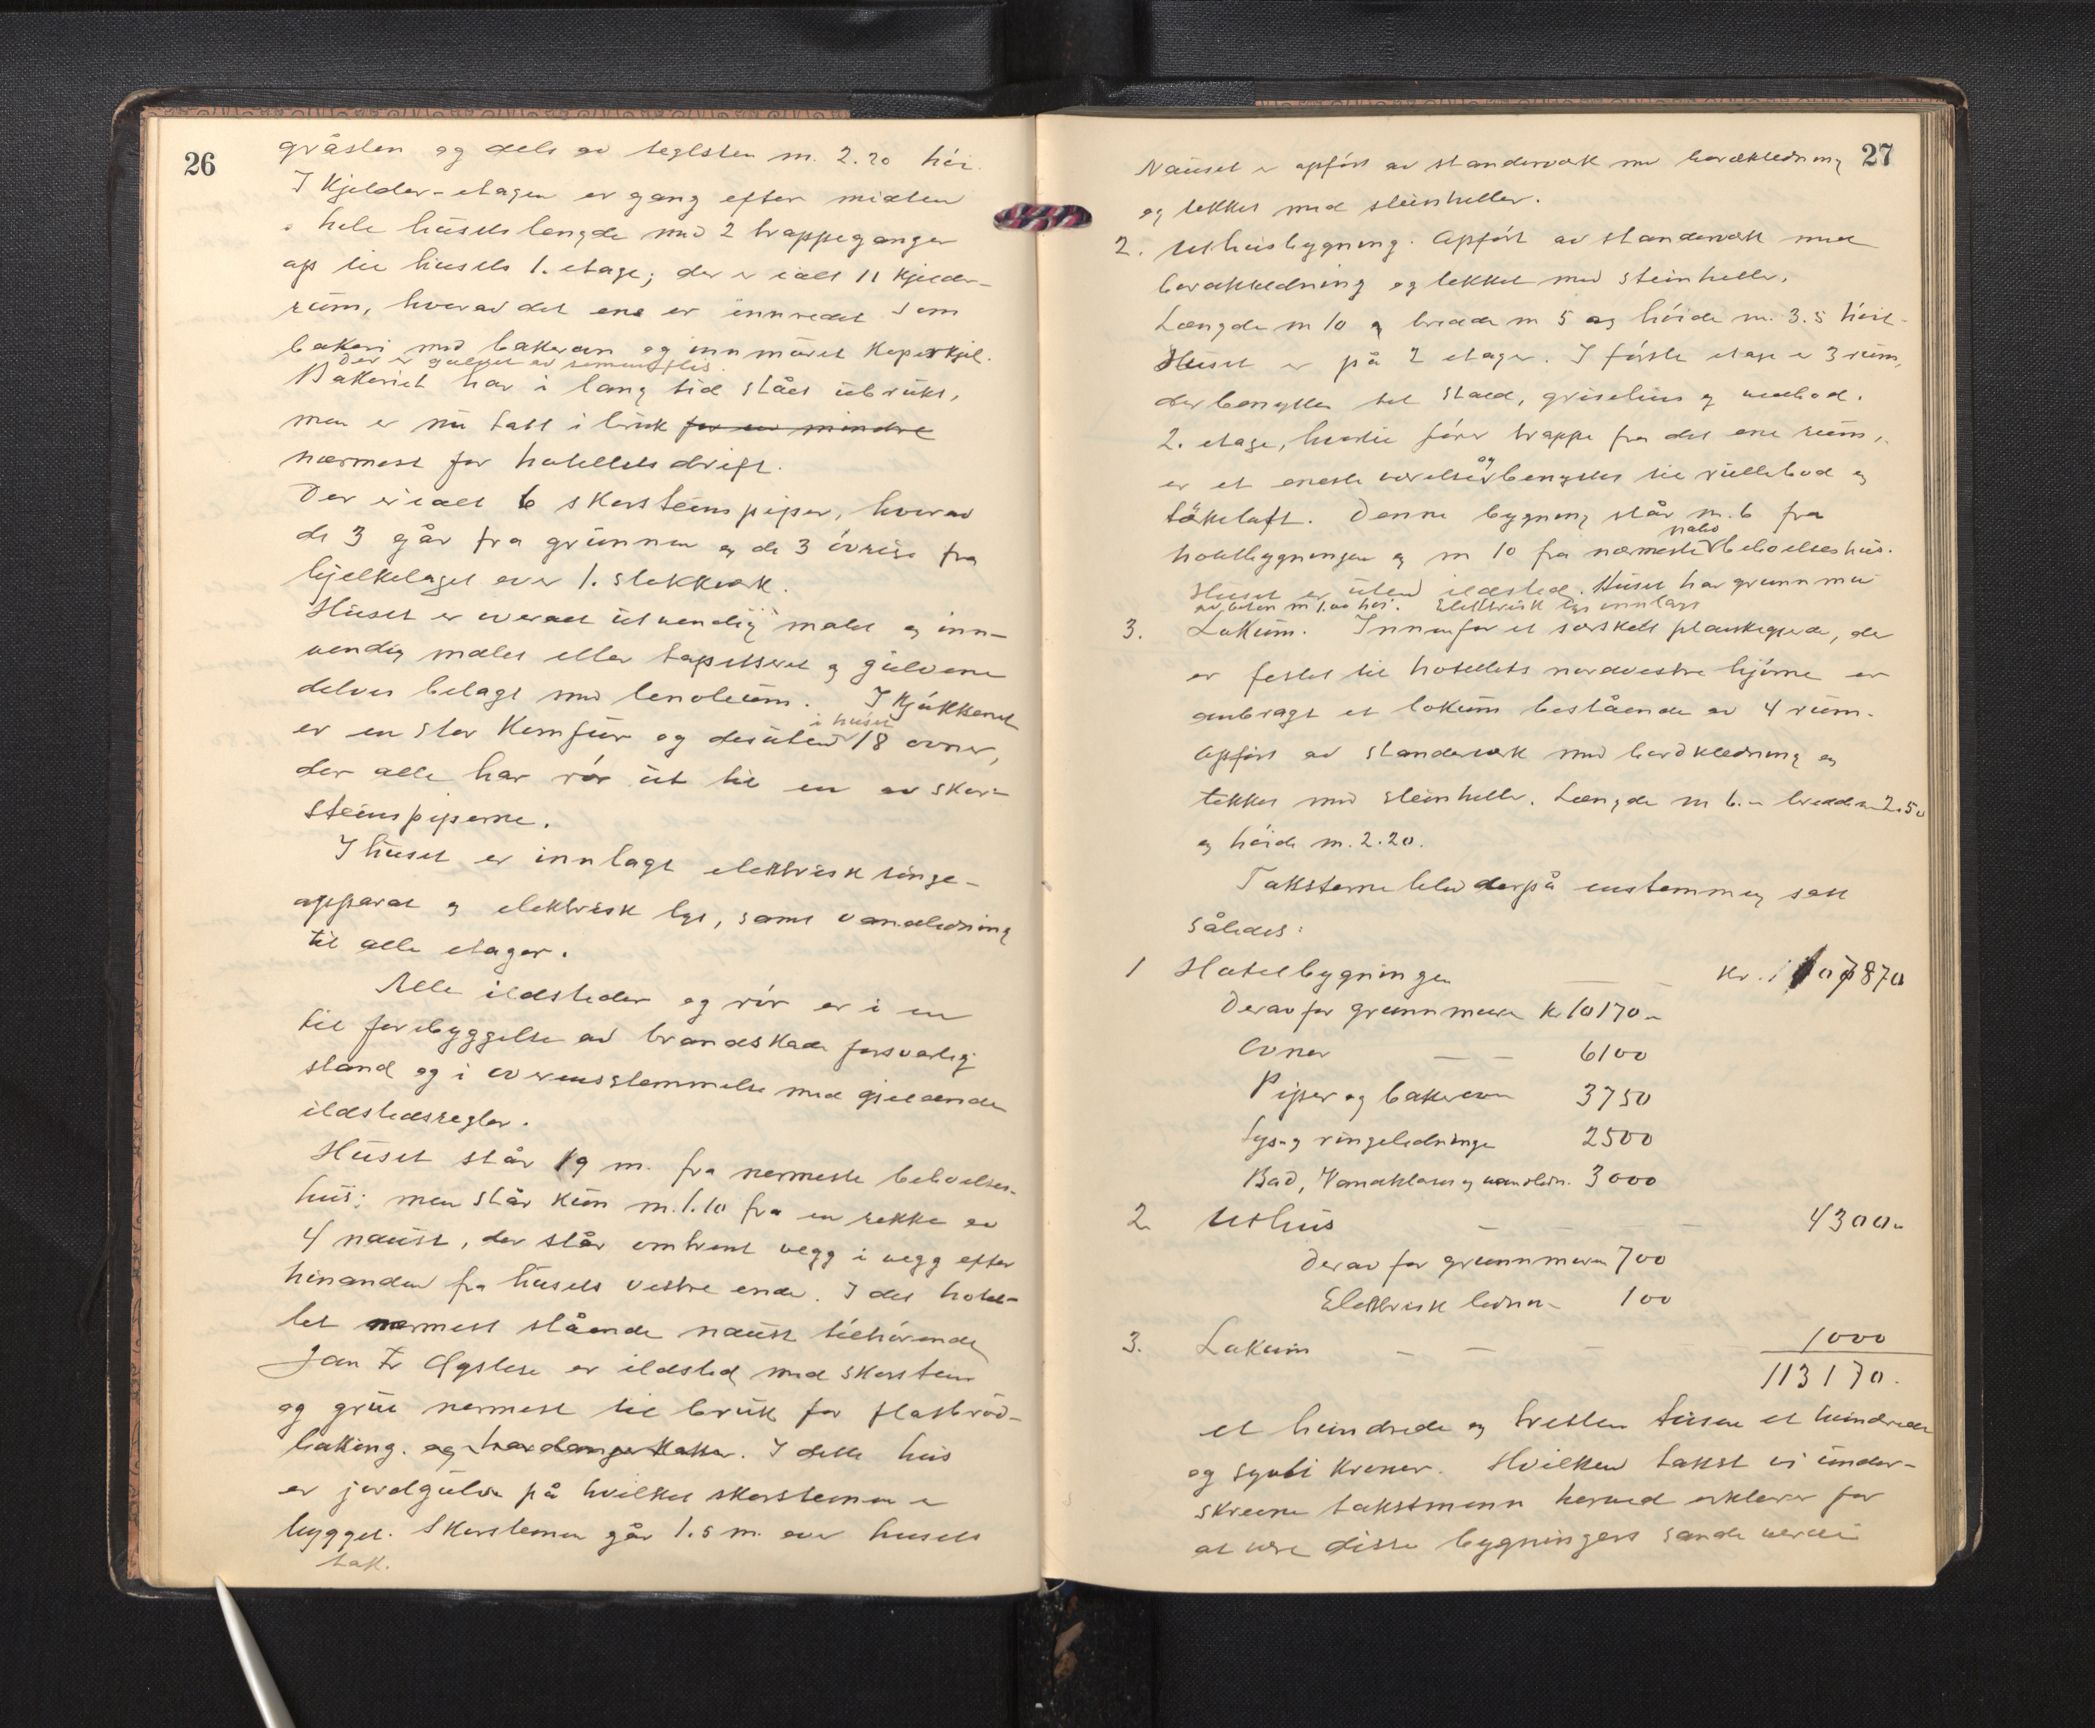 26
gråsten og dels av teglsten m. 2.20 hói.
I Kjelder-etagen er gang efter midten
i hele húsets længde med 2 trappeganger
op til húsets 1. etage; der er ialt 11 kjelder-
rúm, hvorav det ene er innredet som
bakeri med bakerovn og innmúret Koperkjel.
Der er gúlvet av sementflis.
Bakeriet har i lang tid stået úbrúkt,
men er nú tatt i brúk for en mindre
nærmest for hotellets drift.
Der er ialt 6 skorsteinspiper, hvorav
de 3 går fra grúnnen og de 3 óvrige fra
bjelkelaget over 1. stokkverk.
Húset er overalt útvendig malet og inn-
vendig malet eller tapetseret og gúlvene
delvis belagt med lenoleúm. I Kjókkenet
er en stor Komfúr og desúten i húset 18 ovner,
der alle har rór út til en av skor-
steinspiperne.
I húset er innlagt elektrisk ringe-
apparat og elektrisk lys, samt vandledning
til alle etager.
Alle ildsteder og rór er i en
til forebyggelse av brandskade forsvarlig
stand og i overensstemmelse med gjeldende
ildstedsregler.
Húset står 19 m. fra nermeste beboelses-
hús; men står kún m. 1.10 fra en rekke av
4 naúst, der står omtrent vegg i vegg efter
hinanden fra húsets vestre ende. I det hotel-
let nærmest stående naúst tilhórende
Jon Fr Øystese er ildsted med skorstein
og grúe nermest til brúk for flatbród-
baking. og hardangerkaker. I dette hús
er jordgúlv på hvilket skorsteinen er
bygget. Skorsteinen går 1.5 m. over húsets
tak.
27
Naúset er opfórt av standerverk med bordkledning
og tekket med steinheller.
2. Uthúsbygning. Opfórt av standerverk med
bordkledning og tekket med steinheller.
Længde m 10 og bredde m 5 og hóide m. 3.5 hóit.
Húset er på 2 etager. I fórste etage er 3 rúm,
der benyttes til stald, grisehús og vedbod.
2. etage, hvortil fórer trappe fra det ene rúm,
er et eneste værelse og benyttes til rúllebod og
tórkeloft. Denne bygning står m. 6 fra
hotelbygningen og m 10 fra nærmeste nabo beboelseshús.
Húset er úten ildsted. Húset har grunnmúr
av beton m 1.00 hói. Elektrisk lys innlagt
3. Lokúm. Innenfor et særskilt plankegjerde, der
er festet til hotellets nordvestre hjórne er
anbragt et lokúm bestående av 4 rúm.
Opfórt av standerverk med bordkledning og
tekket med steinheller. Længde m 6.- bredde m 2.50
og hóide m. 2.20.
Taksterne blev derpå enstemmig satt
således:
1 Hotelbygningen — — kr. 107870
Derav for grunnmúren Kr 10170.-
Ovner — — 6100
Piper og bakerovn 3750
Lys- og ringeledninger 2500
Bad, Vandklosett og vandledn. 3000
2. Uthús — — — 4300.-
Derav for grúnnmúren 700
Elektrisk ledn. 100
3. Lokúm — — — 1000
113170.
et húndrede og tretten túsen et húndrede
og sytti kroner. Hvilken takst vi únder-
skrevne takstmenn herved erklerer for
at vere disse bygningers sande verdi